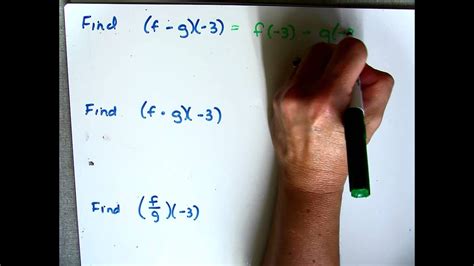 Find (f - g)(-3) = f(-3) - g(-3
Find (f • g)(-3)
Find (f/g)(-3)